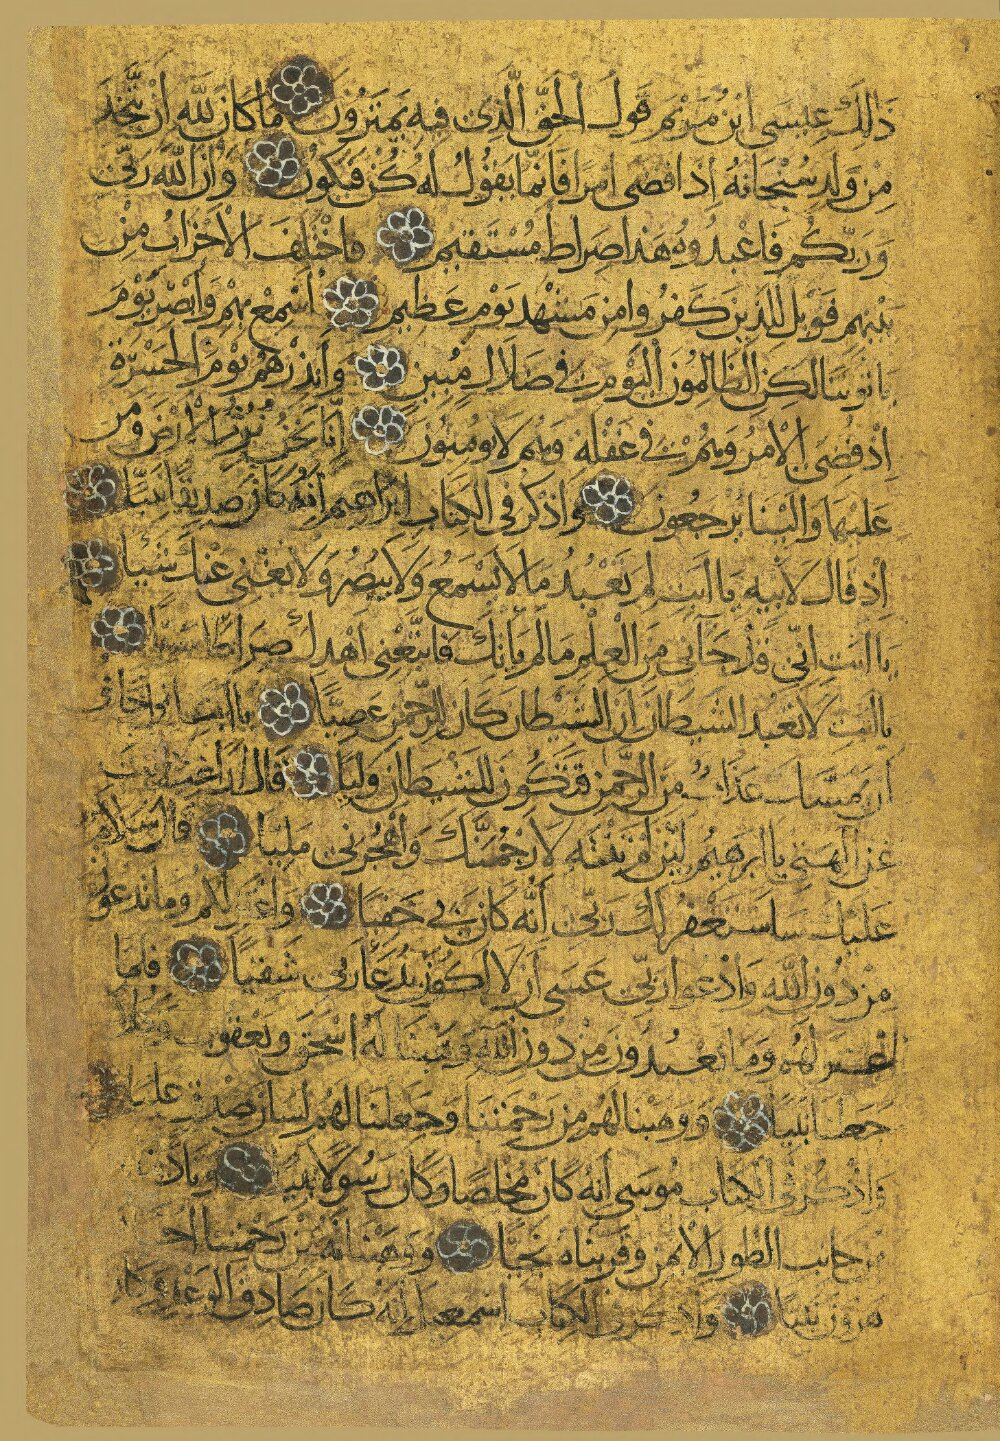 ذَلِكَ عِيسَى ابْنُ مَرْيَمَ قَوْلَ الْحَقِّ الَّذِي فِيهِ يَمْتَرُونَ مَا كَانَ لِلَّهِ أَنْ يَتَّخِذَ
مِنْ وَلَدٍ سُبْحَانَهُ إِذَا قَضَى أَمْرًا فَإِنَّمَا يَقُولُ لَهُ كُنْ فَيَكُونُ وَأَنَّ اللَّهَ رَبِّي
وَرَبُّكُمْ فَاعْبُدُوهُ هَذَا صِرَاطٌ مُسْتَقِيمٌ فَاخْتَلَفَ الْأَحْزَابُ مِنْ
بَيْنِهِمْ فَوَيْلٌ لِلَّذِينَ كَفَرُوا مِنْ مَشْهَدِ يَوْمٍ عَظِيمٍ أَسْمِعْ بِهِمْ وَأَبْصِرْ يَوْمَ
يَأْتُونَنَا لَكِنِ الظَّالِمُونَ الْيَوْمَ فِي ضَلَالٍ مُبِينٍ وَأَنْذِرْهُمْ يَوْمَ الْحَسْرَةِ
إِذْ قُضِيَ الْأَمْرُ وَهُمْ فِي غَفْلَةٍ وَهُمْ لَا يُؤْمِنُونَ إِنَّا نَحْنُ نَرِثُ الْأَرْضَ وَمَنْ
عَلَيْهَا وَإِلَيْنَا يُرْجَعُونَ وَاذْكُرْ فِي الْكِتَابِ إِبْرَاهِيمَ إِنَّهُ كَانَ صِدِّيقًا نَبِيًّا
إِذْ قَالَ لِأَبِيهِ يَا أَبَتِ لِمَ تَعْبُدُ مَا لَا يَسْمَعُ وَلَا يُبْصِرُ وَلَا يُغْنِي عَنْكَ شَيْئًا
يَا أَبَتِ إِنِّي قَدْ جَاءَنِي مِنَ الْعِلْمِ مَا لَمْ يَأْتِكَ فَاتَّبِعْنِي أَهْدِكَ صِرَاطًا سَوِيًّا
يَا أَبَتِ لَا تَعْبُدِ الشَّيْطَانَ إِنَّ الشَّيْطَانَ كَانَ لِلرَّحْمَنِ عَصِيًّا يَا أَبَتِ إِنِّي أَخَافُ
أَنْ يَمَسَّكَ عَذَابٌ مِنَ الرَّحْمَنِ فَتَكُونَ لِلشَّيْطَانِ وَلِيًّا قَالَ أَرَاغِبٌ أَنْتَ
عَنْ آلِهَتِي يَا إِبْرَهِيمُ لَئِنْ لَمْ تَنْتَهِ لَأَرْجُمَنَّكَ وَاهْجُرْنِي مَلِيًّا قَالَ سَلَامٌ
عَلَيْكَ سَأَسْتَغْفِرُ لَكَ رَبِّي إِنَّهُ كَانَ بِي حَفِيًّا وَأَعْتَزِلُكُمْ وَمَا تَدْعُونَ
مِنْ دُونِ اللَّهِ وَأَدْعُوا رَبِّي عَسَى أَنْ لَا أَكُونَ بِدُعَاءِ رَبِّي شَقِيًّا فَلَمَّا
اعْتَزَلَهُمْ وَمَا يَعْبُدُونَ مِنْ دُونِ اللَّهِ وَهَبْنَا لَهُ إِسْحَقَ وَيَعْقُوبَ وَكُلًّا
جَعَلْنَا نَبِيًّا وَوَهَبْنَا لَهُمْ مِنْ رَحْمَتِنَا وَجَعَلْنَا لَهُمْ لِسَانَ صِدْقٍ عَلِيًّا
وَاذْكُرْ فِي الْكِتَابِ مُوسَى إِنَّهُ كَانَ مُخْلَصًا وَكَانَ رَسُولًا نَبِيًّا وَنَادَيْنَاهُ
مِنْ جَانِبِ الطُّورِ الْأَيْمَنِ وَقَرَّبْنَاهُ نَجِيًّا وَوَهَبْنَا لَهُ مِنْ رَحْمَتِنَا أَخَاهُ
هَرُونَ نَبِيًّا وَاذْكُرْ فِي الْكِتَابِ إِسْمَعِيلَ إِنَّهُ كَانَ صَادِقَ الْوَعْدِ وَكَانَ